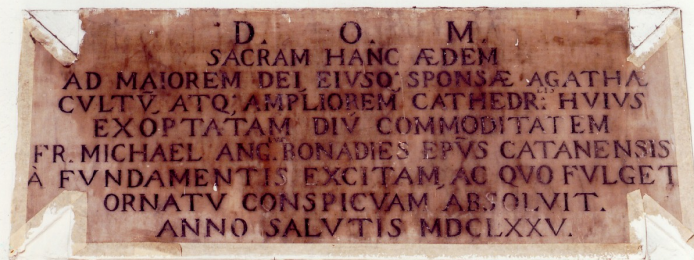 D. O. M.
SACRAM HANC ÆDEM
AD MAIOREM DEI EIVSQ; SPONSÆ AGATHÆ
CVLTŪ, ATQ; AMPLIOREM CATHEDR: HVIVS
EXOPTATAM DIV COMMODITATEM
FR. MICHAEL ANG. BONADIES EPVS CATANENSIS
À FVNDAMENTIS EXCITAM, AC QVO FVLGET
ORNATV CONSPICVAM ABSOLVIT.
ANNO SALVTIS MDCLXXV.